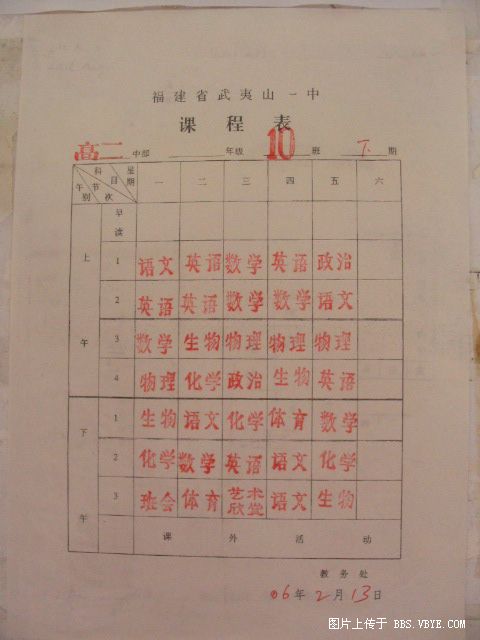 福建省武夷山一中
课程表
高二 中部 年级 10 班 下 期
科目 星期 午别 节次 一 二 三 四 五 六
早读
上午
1 语文 英语 数学 英语 政治
2 英语 英语 数学 数学 语文
3 数学 生物 物理 物理 物理
4 物理 化学 政治 生物 英语
下午
1 生物 语文 化学 体育 数学
2 化学 数学 英语 语文 化学
3 班会 体育 艺术欣赏 语文 生物
课外活动
教务处
06年2月13日
图片上传于 BBS.VBYE.COM